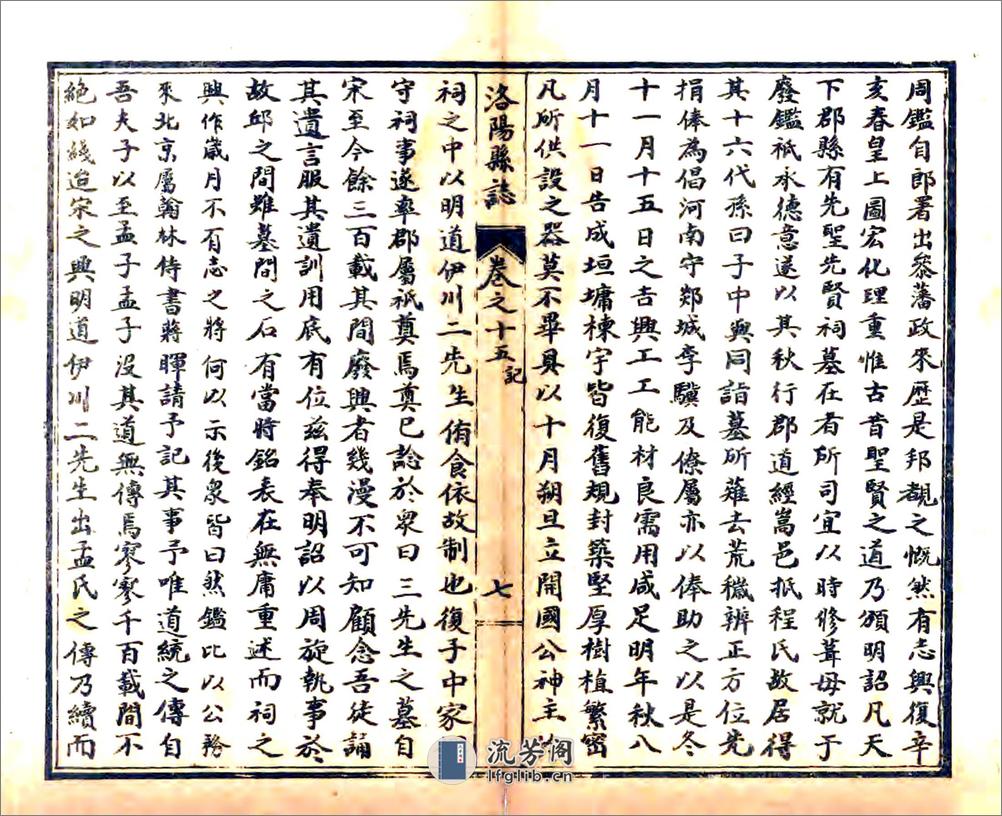 周鑑自郎署出叅藩政來歷是邦覩之慨然有志興復辛
亥春皇上圖宏化理重惟古昔聖賢之道乃頒明詔凡天
下郡縣有先聖先賢祠墓在者所司宜以時修葺毋就于
廢鑑祇承德意遂以其秋行郡道經嵩邑抵程氏故居得
其十六代孫曰子中與同詣墓所薙去荒穢辨正方位先
捐俸為倡河南守郯城李驥及僚屬亦以俸助之以是冬
十一月十五日之吉興工工能材良需用咸足明年秋八
月十一日告成垣墉棟宇皆復舊規封築堅厚樹植繁密
凡所供設之器莫不畢具以十月朔旦立開國公神主
祠之中以明道伊川二先生侑食依故制也復子中家
洛陽縣誌
卷之十五記
七
守祠事遂率郡屬祇奠焉奠已諗於衆曰三先生之墓自
宋至今餘三百載其間廢興者幾漫不可知顧念吾徒誦
其遺言服其遺訓用底有位茲得奉明詔以周旋執事於
故邱之間雖墓間之石有當時銘表在無庸重述而祠之
興作歲月不有志之將何以示後衆皆曰然鑑比以公務
來北京屬翰林侍書蔣暉請予記其事予唯道統之傳自
吾夫子以至孟子孟子沒其道無傳焉寥寥千百載間不
絶如綫迨宋之興明道伊川二先生出孟氏之傳乃續而
流芳阁
lfglib.cn